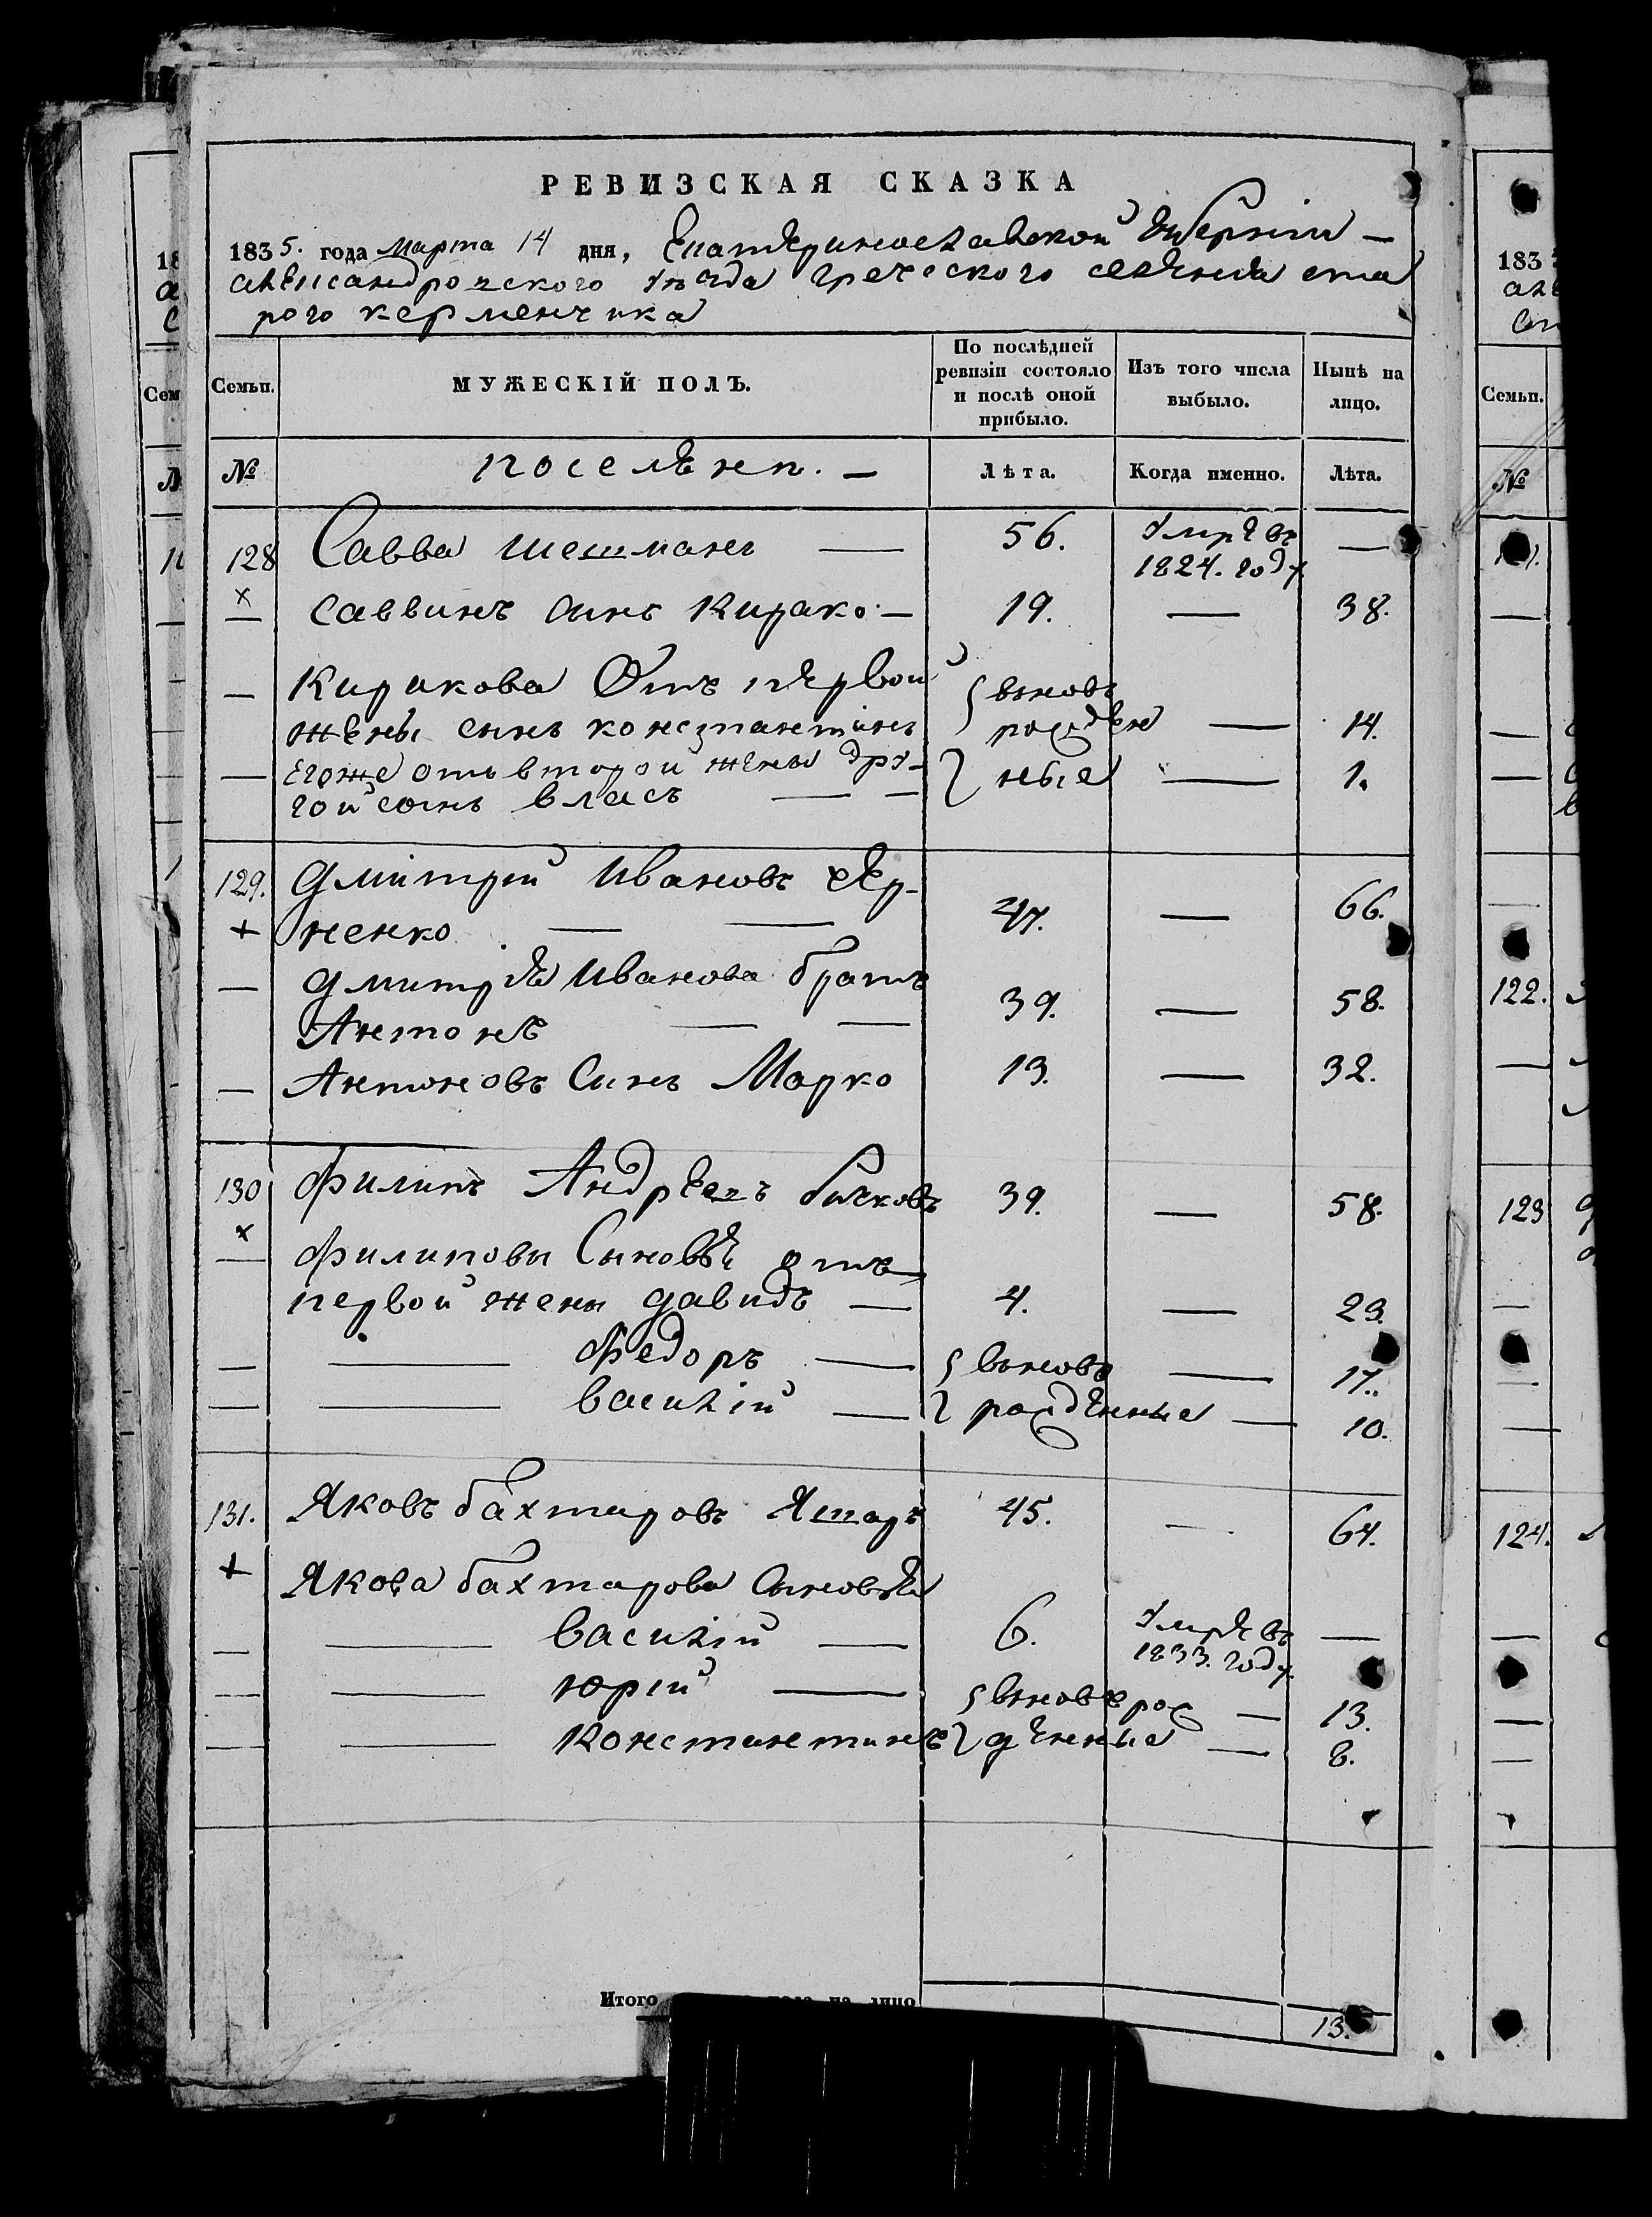 РЕВИЗСКАЯ СКАЗКА
1835. года Марта 14 дня, Екатеринославской Губерніи —
Александровского уѣзда греческого селенія ста
рого керменчика
Семьи. МУЖЕСКІЙ ПОЛЪ. По послѣдней ревизіи состояло и послѣ оной прибыло. Изъ того числа выбыло. Нынѣ на лицо.
№ поселяни. — Лѣта. Когда именно. Лѣта.
128 Савва шешманъ — 56. умре въ 1824. году —
× — саввинъ сынъ Кирако — 19. — 38.
— Киракова Отъ первой } вновь
жены сынъ константинъ рожден — 14.
— Егоже отъ второй жены дру- } ные — 1.
гой сынъ власъ — —
129. Дмитрий Ивановъ
+ ненко — — 47. — 66.
— дмитрія Иванова братъ
Антонъ — — 39. — 58.
— Антоновъ Сынъ Марко 13. — 32.
130 Филипъ Андреевъ бичковъ 39. — 58.
× — Филиповы Сыновья отъ
первой жены давидъ — 4. — 23.
— — Федоръ — } вновь — 17.
— — василій — } рожденные — 10.
131. Яковъ бахтаровъ 45. — 64.
+ Якова бахтарова Сыновья
— — василій — 6. умре въ 1833. году —
— — юрій — } вновь рож — 13.
— — Константинъ } денные — 8.
Итого на лицо 13.
183
Семьи.
№
122.
123
124.